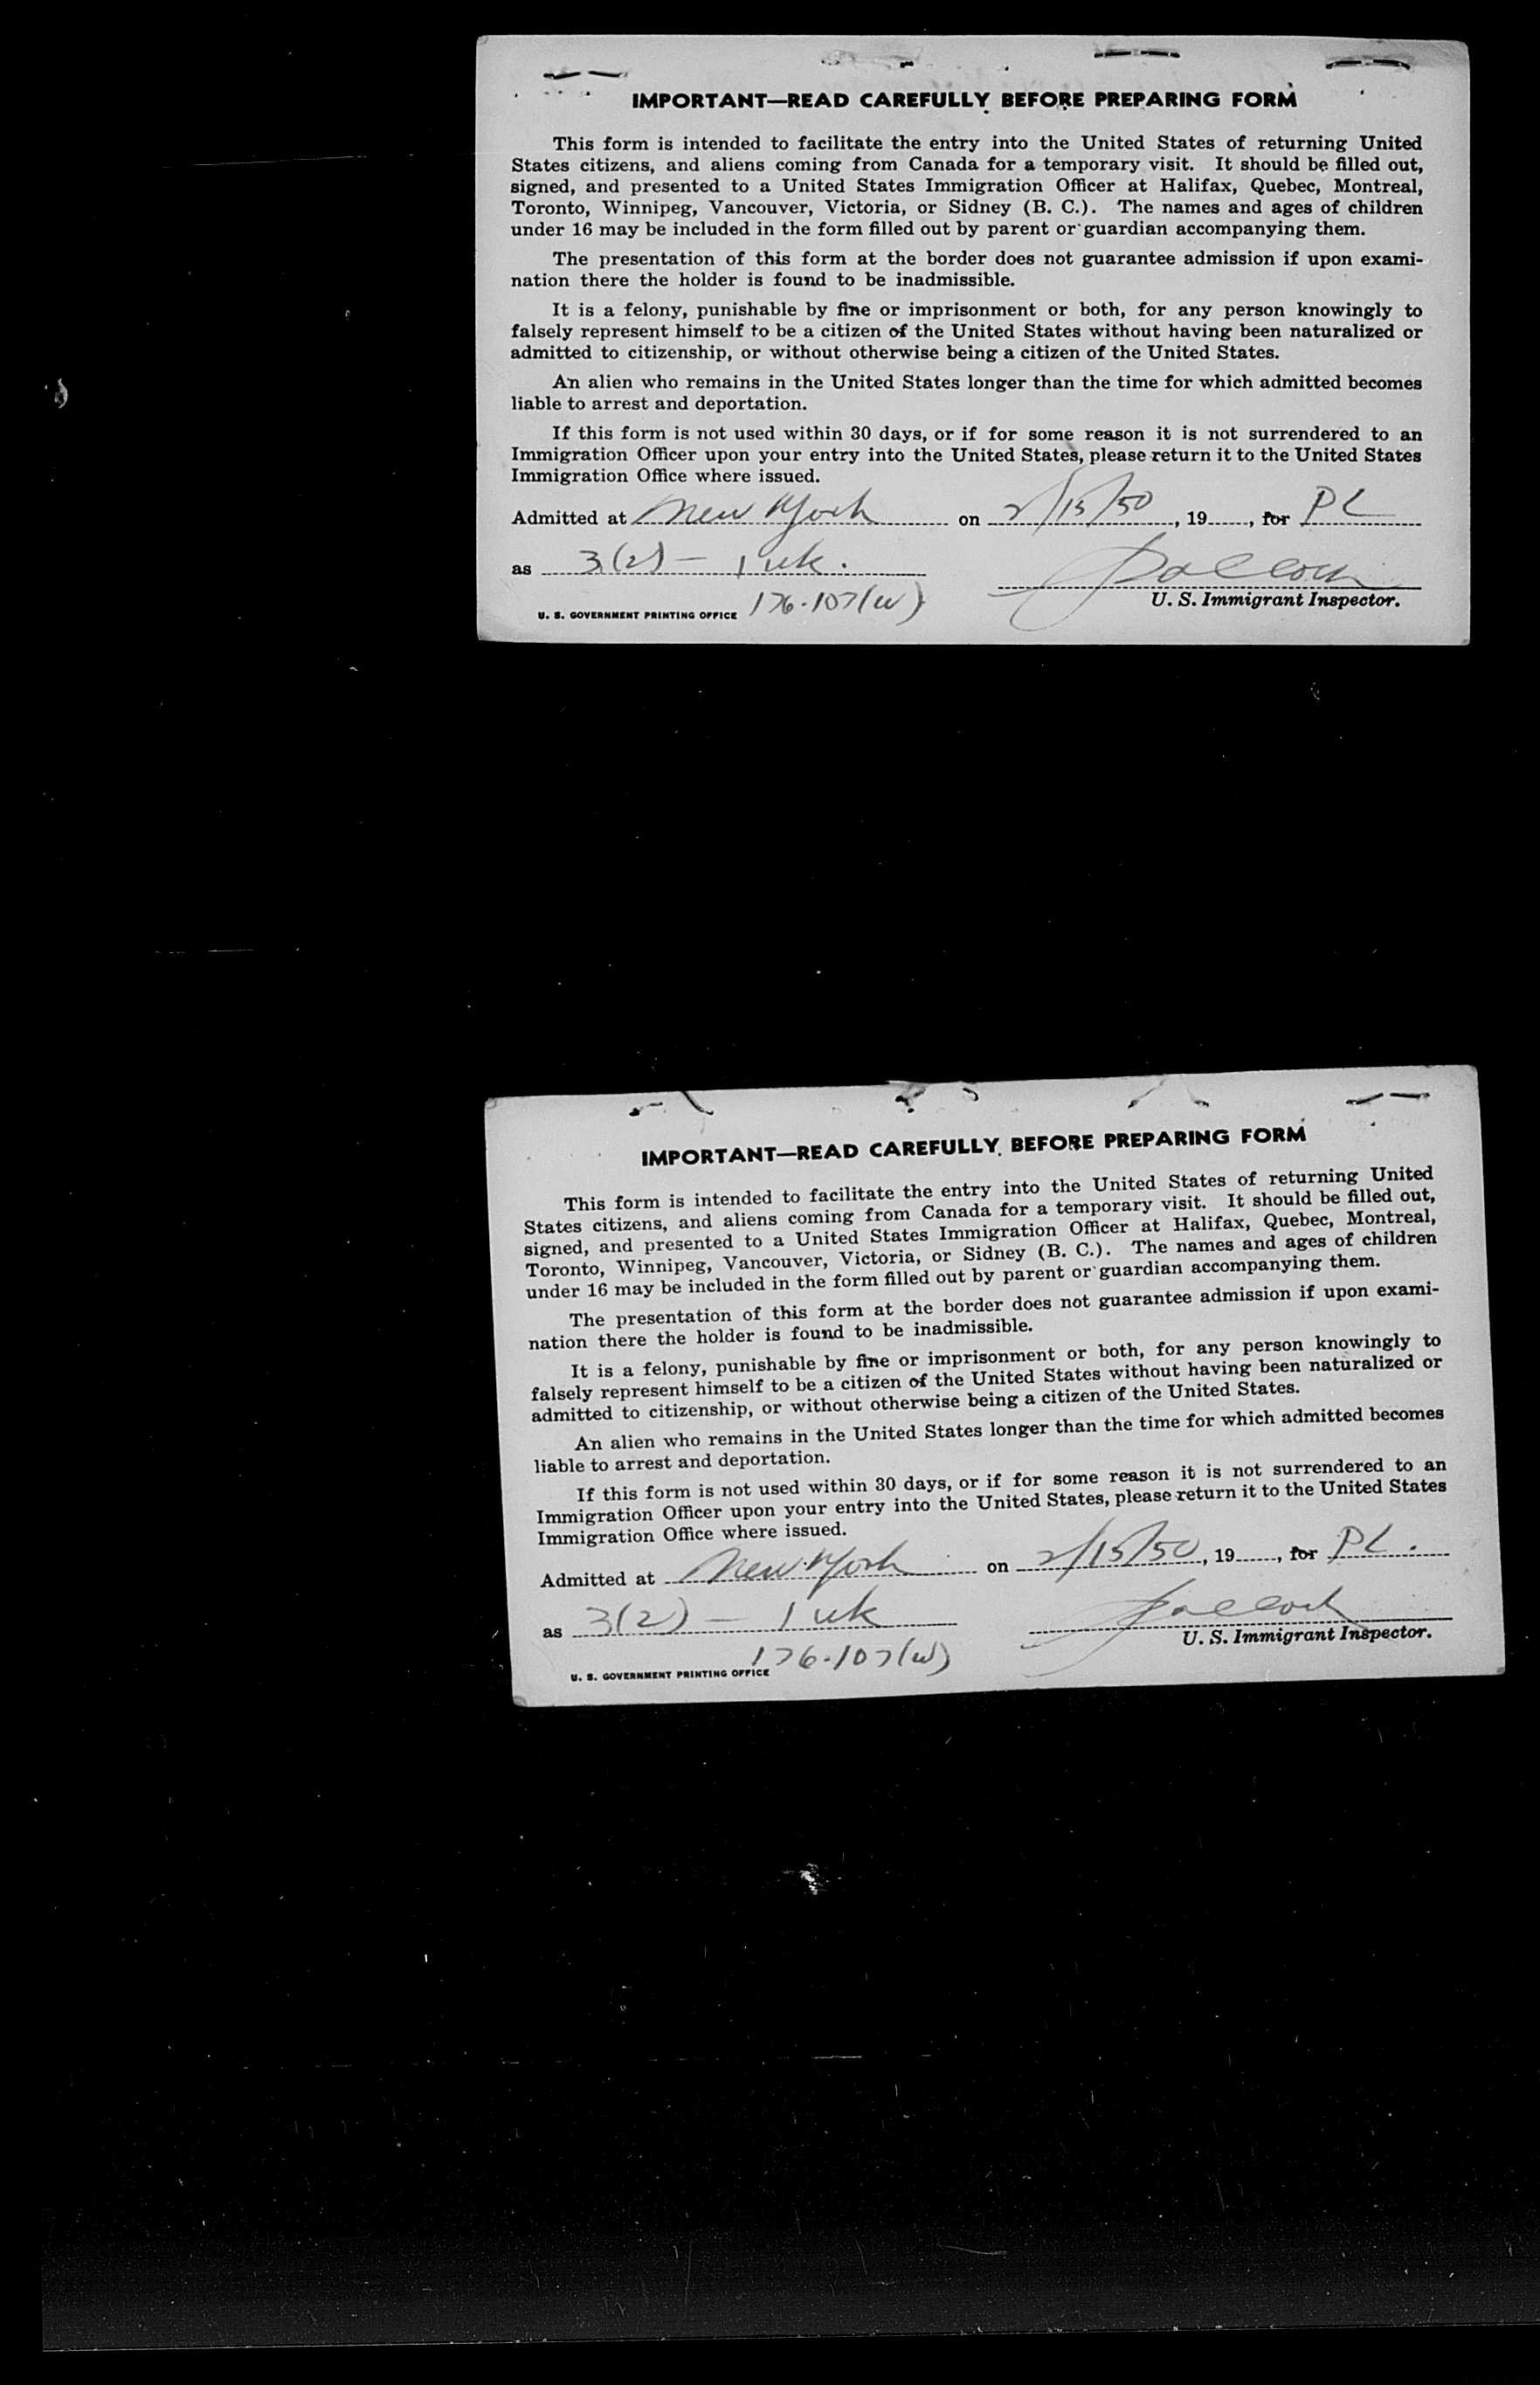 IMPORTANT—READ CAREFULLY BEFORE PREPARING FORM
This form is intended to facilitate the entry into the United States of returning United
States citizens, and aliens coming from Canada for a temporary visit. It should be filled out,
signed, and presented to a United States Immigration Officer at Halifax, Quebec, Montreal,
Toronto, Winnipeg, Vancouver, Victoria, or Sidney (B. C.). The names and ages of children
under 16 may be included in the form filled out by parent or guardian accompanying them.
The presentation of this form at the border does not guarantee admission if upon exami-
nation there the holder is found to be inadmissible.
It is a felony, punishable by fine or imprisonment or both, for any person knowingly to
falsely represent himself to be a citizen of the United States without having been naturalized or
admitted to citizenship, or without otherwise being a citizen of the United States.
An alien who remains in the United States longer than the time for which admitted becomes
liable to arrest and deportation.
If this form is not used within 30 days, or if for some reason it is not surrendered to an
Immigration Officer upon your entry into the United States, please return it to the United States
Immigration Office where issued.
Admitted at New York on 2/15/50, 19, for PL
as 3(2) - 1 wk.
U. S. Immigrant Inspector.
U. S. GOVERNMENT PRINTING OFFICE 176-107(w)
IMPORTANT—READ CAREFULLY BEFORE PREPARING FORM
This form is intended to facilitate the entry into the United States of returning United
States citizens, and aliens coming from Canada for a temporary visit. It should be filled out,
signed, and presented to a United States Immigration Officer at Halifax, Quebec, Montreal,
Toronto, Winnipeg, Vancouver, Victoria, or Sidney (B. C.). The names and ages of children
under 16 may be included in the form filled out by parent or guardian accompanying them.
The presentation of this form at the border does not guarantee admission if upon exami-
nation there the holder is found to be inadmissible.
It is a felony, punishable by fine or imprisonment or both, for any person knowingly to
falsely represent himself to be a citizen of the United States without having been naturalized or
admitted to citizenship, or without otherwise being a citizen of the United States.
An alien who remains in the United States longer than the time for which admitted becomes
liable to arrest and deportation.
If this form is not used within 30 days, or if for some reason it is not surrendered to an
Immigration Officer upon your entry into the United States, please return it to the United States
Immigration Office where issued.
Admitted at New York on 2/15/50, 19, for PL.
as 3(2) - 1 wk
U. S. Immigrant Inspector.
U. S. GOVERNMENT PRINTING OFFICE 176-107(w)